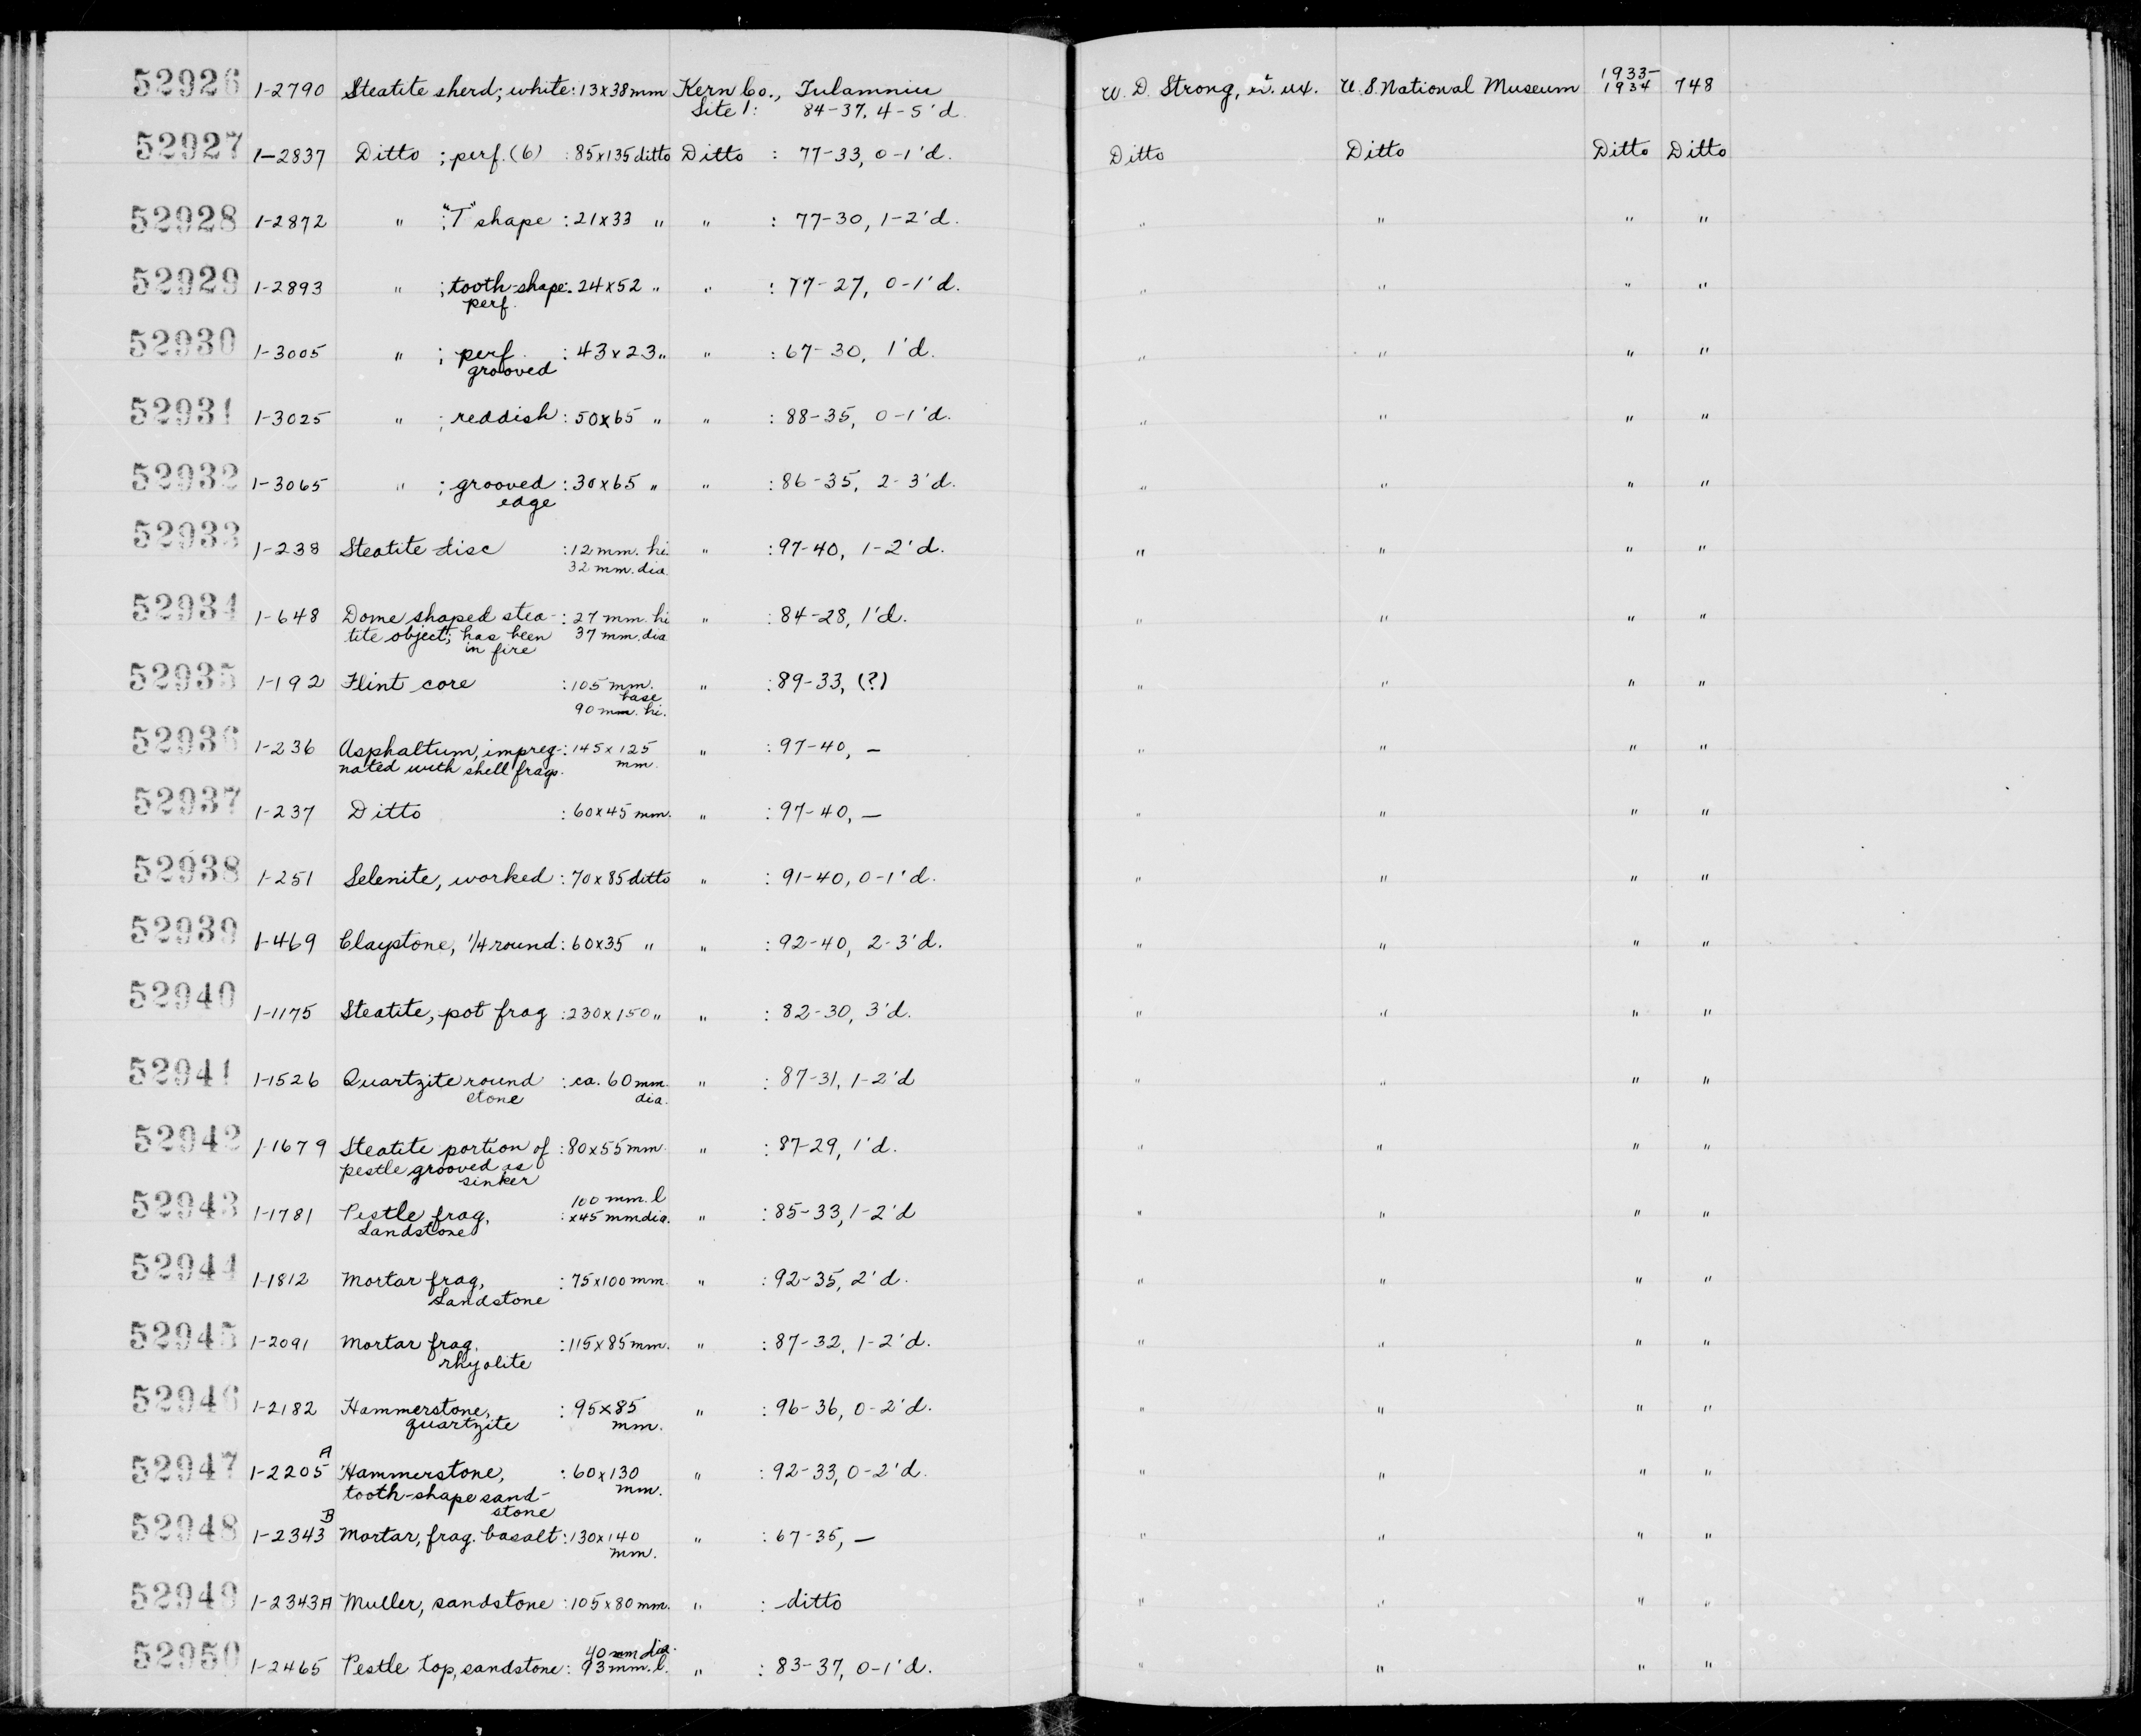 52926 1-2790 Steatite sherd; white: 13x38mm Kern Co., Tulamniu 1933-
Site 1: 84-37, 4-5'd. W. D. Strong, U. S. National Museum 1934 748
52927 1-2837 Ditto ; perf. (6) : 85x135 ditto Ditto : 77-33, 0-1'd. Ditto Ditto Ditto Ditto
52928 1-2872 " : "T" shape : 21x33 " " : 77-30, 1-2'd. " " " "
52929 1-2893 " ; tooth-shape: 24x52 " " : 77-27, 0-1'd. " " " "
perf.
52930 1-3005 " ; perf. : 43x23 " " : 67-30, 1'd. " " " "
grooved
52931 1-3025 " ; reddish : 50x65 " " : 88-35, 0-1'd. " " " "
52932 1-3065 " ; grooved : 30x65 " " : 86-35, 2-3'd. " " " "
edge
52933 1-238 Steatite disc : 12 mm. hi. " : 97-40, 1-2'd. " " " "
32 mm. dia.
52934 1-648 Dome shaped stea- : 27 mm. hi " : 84-28, 1'd. " " " "
tite object; has been 37 mm. dia
in fire
52935 1-192 Flint core : 105 mm. " : 89-33, (?) " " " "
base
90 mm. hi.
52936 1-236 Asphaltum, impreg-: 145x125 " : 97-40, — " " " "
nated with shell frags. mm.
52937 1-237 Ditto : 60x45 mm. " : 97-40, — " " " "
52938 1-251 Selenite, worked : 70x85 ditto " : 91-40, 0-1'd. " " " "
52939 1-469 Claystone, 1/4 round : 60x35 " " : 92-40, 2-3'd. " " " "
52940 1-1175 Steatite, pot frag : 230x150 " " : 82-30, 3'd. " " " "
52941 1-1526 Quartzite round : ca. 60 mm. " : 87-31, 1-2'd " " " "
stone dia.
52942 1-1679 Steatite portion of : 80x55 mm. " : 87-29, 1'd. " " " "
pestle grooved as
sinker
100 mm. l
52943 1-1781 Pestle frag, : x45 mm dia. " : 85-33, 1-2'd " " " "
Sandstone
52944 1-1812 Mortar frag, : 75x100 mm. " : 92-35, 2'd. " " " "
Sandstone
52945 1-2091 Mortar frag. : 115x85 mm. " : 87-32, 1-2'd. " " " "
rhyolite
52946 1-2182 Hammerstone, : 95x85 " : 96-36, 0-2'd. " " " "
quartzite mm.
A
52947 1-2205 Hammerstone, : 60x130 " : 92-33, 0-2'd. " " " "
tooth-shape sand- mm.
stone
B
52948 1-2343 Mortar, frag. basalt : 130x140 " : 67-35, — " " " "
mm.
52949 1-2343A Muller, sandstone : 105x80 mm. " : ditto " " " "
40 mm dia.
52950 1-2465 Pestle top, sandstone : 93 mm. l. " : 83-37, 0-1'd. " " " "